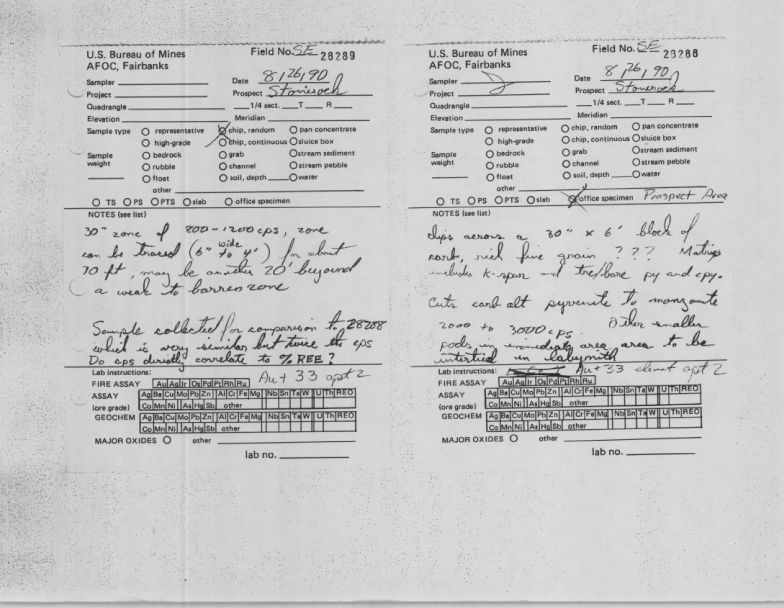 U.S. Bureau of Mines
AFOC, Fairbanks
Field No. SE 28289
Sampler
Date 8/26/90
Project
Prospect Stonerock
Quadrangle
1/4 sect. T R
Elevation
Meridian
Sample type representative chip, random pan concentrate
high-grade chip, continuous sluice box
Sample weight bedrock grab stream sediment
rubble channel stream pebble
float soil, depth water
other
TS PS PTS slab office specimen
NOTES (see list)
30" zone of 800-1200 cps, zone
can be traced (6" wide to 4') for about
70 ft, may be another 20' beyound
a weak to barren zone
Sample collected for comparison to 28288
which is very similar but twice the cps
Do cps directly correlate to % REE?
Lab instructions: Au + 33 opt 2
FIRE ASSAY Au Ag Ir Os Pd Pt Rh Ru
ASSAY Ag Ba Cu Mo Pb Zn Al Cr Fe Mg Nb Sn Ta W U Th REO
(ore grade) Co Mn Ni As Hg Sb other
GEOCHEM Ag Ba Cu Mo Pb Zn Al Cr Fe Mg Nb Sn Ta W U Th REO
Co Mn Ni As Hg Sb other
MAJOR OXIDES other
lab no.
U.S. Bureau of Mines
AFOC, Fairbanks
Field No. SE 28288
Sampler
Date 8/26/90
Project
Prospect Stonerock
Quadrangle
1/4 sect. T R
Elevation
Meridian
Sample type representative chip, random pan concentrate
high-grade chip, continuous sluice box
Sample weight bedrock grab stream sediment
rubble channel stream pebble
float soil, depth water
other
TS PS PTS slab office specimen Prospect Area
NOTES (see list)
chips across a 30" x 6' block of
carb, rich fine grain ??? Matrix
includes K-spar and trc/bare py and cpy.
Cuts carb alt pyroxenite to monzonite
2000 to 3000 cps. Other smaller
pods in immediate area area to be
in
Lab instructions: Au + 33 element opt 2
FIRE ASSAY Au Ag Ir Os Pd Pt Rh Ru
ASSAY Ag Ba Cu Mo Pb Zn Al Cr Fe Mg Nb Sn Ta W U Th REO
(ore grade) Co Mn Ni As Hg Sb other
GEOCHEM Ag Ba Cu Mo Pb Zn Al Cr Fe Mg Nb Sn Ta W U Th REO
Co Mn Ni As Hg Sb other
MAJOR OXIDES other
lab no.